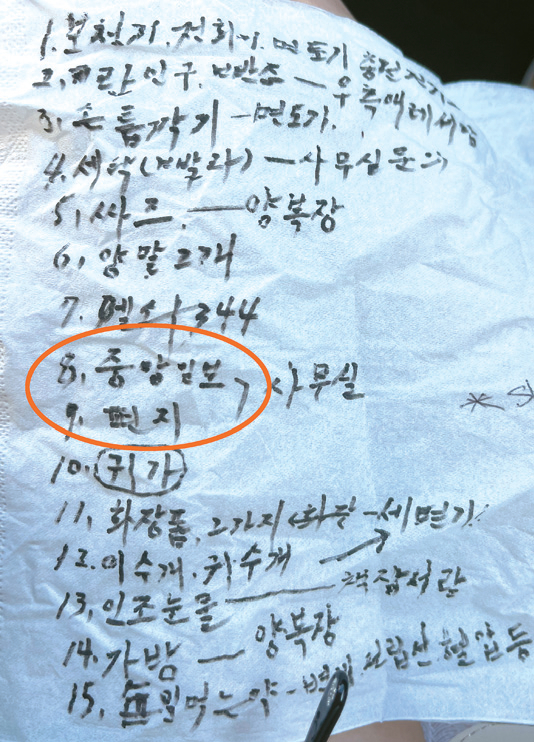 1. 보청기, 전화기, 면도기 충전
2. 인구, 우측 아래
3. 손톱깍기 - 면도기,
4. 세탁( ) - 사무실문의
5. 싸즈, - 양복장
6. 양말 2개
7. 344
8. 중앙일보
9. 편지 , 사무실
10. 귀가
11. 화장품, 2가지 - 세면기
12. 이수개, 귀수개
13. 인조눈물 책장서랍
14. 가방 - 양복장
15. 매일먹는약 - 전립선 혈압 등